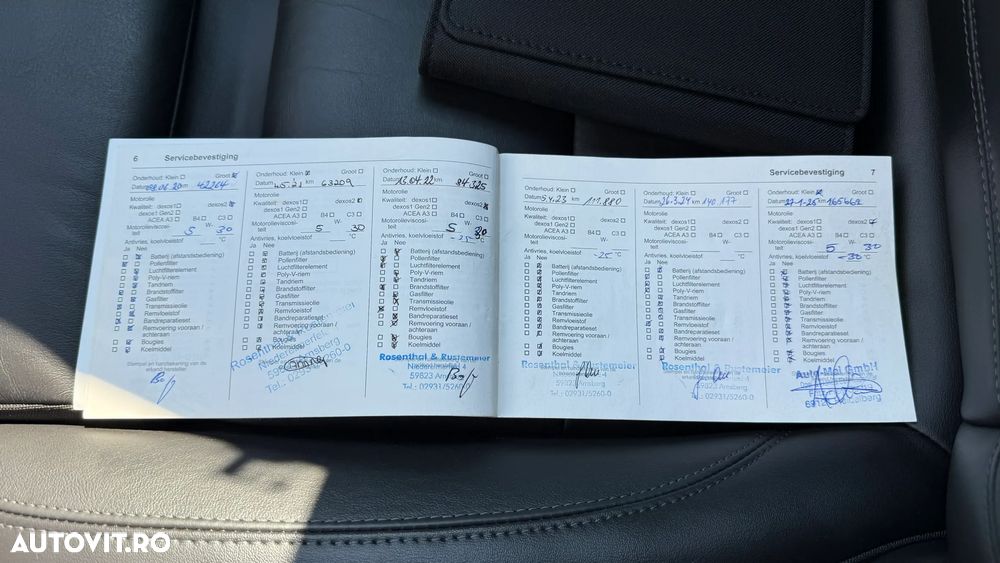 6 Servicebevestiging
Onderhoud: Klein Groot
Datum km 42264
Motorolie
Kwaliteit: dexos1 dexos2
dexos1 Gen2
ACEA A3 B4 C3
Motorolieviscosi- W-
teit 5 30
Antivries, koelvloeistof °C
Ja Nee
Batterij (afstandsbediening)
Pollenfilter
Luchtfilterelement
Poly-V-riem
Tandriem
Brandstoffilter
Gasfilter
Transmissieolie
Remvloeistof
Bandreparatieset
Remvoering vooraan /
achteraan
Bougies
Koelmiddel
Stempel en handtekening van de
Onderhoud: Klein Groot
Datum km 63209
Motorolie
Kwaliteit: dexos1 dexos2
dexos1 Gen2
ACEA A3 B4 C3
Motorolieviscosi- W-
teit 5 30
Antivries, koelvloeistof °C
Ja Nee
Batterij (afstandsbediening)
Pollenfilter
Luchtfilterelement
Poly-V-riem
Tandriem
Brandstoffilter
Gasfilter
Transmissieolie
Remvloeistof
Bandreparatieset
Remvoering vooraan /
achteraan
Bougies
Koelmiddel
Onderhoud: Klein Groot
Datum 13.04.22 km 84325
Motorolie
Kwaliteit: dexos1 dexos2
dexos1 Gen2
ACEA A3 B4 C3
Motorolieviscosi- W-
teit 5 30
Antivries, koelvloeistof -25 °C
Ja Nee
Batterij (afstandsbediening)
Pollenfilter
Luchtfilterelement
Poly-V-riem
Tandriem
Brandstoffilter
Gasfilter
Transmissieolie
Remvloeistof
Bandreparatieset
Remvoering vooraan /
achteraan
Bougies
Koelmiddel
Rosenthal & Rustemeier
59823 Arnsberg
Tel.: 02931/5260-0
Servicebevestiging 7
Onderhoud: Klein Groot
Datum 5.4.23 km 111.880
Motorolie
Kwaliteit: dexos1 dexos2
dexos1 Gen2
ACEA A3 B4 C3
Motorolieviscosi- W-
teit
Antivries, koelvloeistof -25 °C
Ja Nee
Batterij (afstandsbediening)
Pollenfilter
Luchtfilterelement
Poly-V-riem
Tandriem
Brandstoffilter
Gasfilter
Transmissieolie
Remvloeistof
Bandreparatieset
Remvoering vooraan /
achteraan
Bougies
Koelmiddel
59823 Arnsberg
Tel.: 02931/5260-0
Onderhoud: Klein Groot
Datum 26.3.24 km 140.177
Motorolie
Kwaliteit: dexos1 dexos2
dexos1 Gen2
ACEA A3 B4 C3
Motorolieviscosi- W-
teit
Antivries, koelvloeistof °C
Ja Nee
Batterij (afstandsbediening)
Pollenfilter
Luchtfilterelement
Poly-V-riem
Tandriem
Brandstoffilter
Gasfilter
Transmissieolie
Remvloeistof
Bandreparatieset
Remvoering vooraan /
achteraan
Bougies
Koelmiddel
Rosenthal & Rustemeier
59823 Arnsberg
Tel.: 02931/5260-0
Onderhoud: Klein Groot
Datum 27.1.25 km 165662
Motorolie
Kwaliteit: dexos1 dexos2
dexos1 Gen2
ACEA A3 B4 C3
Motorolieviscosi- W-
teit 5 30
Antivries, koelvloeistof -30 °C
Ja Nee
Batterij (afstandsbediening)
Pollenfilter
Luchtfilterelement
Poly-V-riem
Tandriem
Brandstoffilter
Gasfilter
Transmissieolie
Remvloeistof
Bandreparatieset
Remvoering vooraan /
achteraan
Bougies
Koelmiddel
GmbH
AUTOVIT.RO